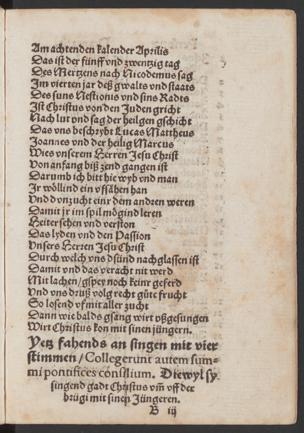 Am achtenden kalender Aprilis
Das ist der fünff vnd zwentzig tag
Des Mertzens nach Nicodemus sag
Im vierten jar deß gwalts vnd staats
Des suns Nestionis vnd sins Radts
Jst Christus von den Juden gricht
Nach lut vnd sag der heilgen gschicht
Das vns beschrybt Lucas Mattheus
Joannes vnd der heilig Marcus
Wies vnserem Herren Jesu Christ
Von anfang biß zend gangen ist
Darumb ich bitt hie wyb vnd man
Jr wöllind ein vfsähen han
Vnd vnzucht einr dem andren weren
Damit jr im spil mögind leren
Heiter sehen vnd verston
Das lyden vnd den Passion
Vnsers Herren Jesu Christ
Durch welch vns dsünd nachglassen ist
Damit vnd das veracht nit werd
Mit lachen / gspey noch keinr geferd
Vnd vns druß volg recht güte frucht
So losend vf mit aller zucht
Dann wie balds gsang wirt vßgesungen
Wirt Christus kon mit sinen jüngern.
Yetz fahends an singen mit vier
stimmen / Collegerunt autem sum-
mi pontifices consilium. Diewyl sy
singend gadt Christus vm̄ vff der
brügi mit sinen Jüngeren.
B iij